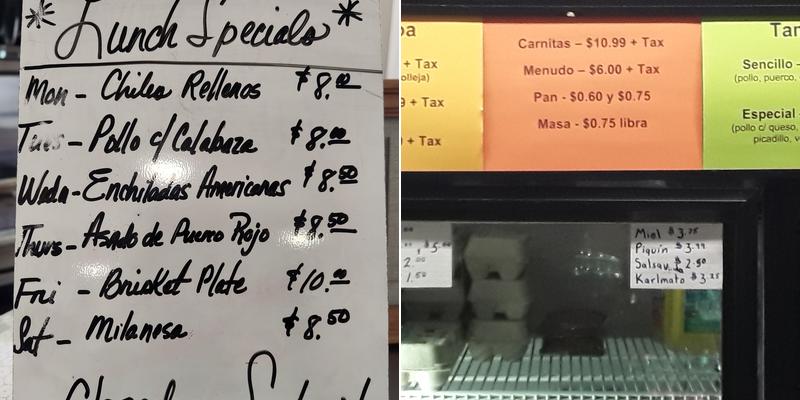 Lunch Specials
Mon - Chiles Rellenos $8.00
Tues - Pollo c/ Calabaza $8.00
Weds - Enchiladas Americanas $8.50
Thurs - Asado de Puerco Rojo $8.50
Fri - Brisket Plate $10.00
Sat - Milanesa $8.50
+ Tax
olleja)
9 + Tax
+ Tax
Carnitas – $10.99 + Tax
Menudo – $6.00 + Tax
Pan - $0.60 y $0.75
Masa - $0.75 libra
Tam
Sencillo –
(pollo, puerco,
Especial -
(pollo c/ queso,
picadillo, v
$5.00
2.00
1.50
Miel $3.75
Piquin $3.99
Salsa $2.50
Karlmato $3.25